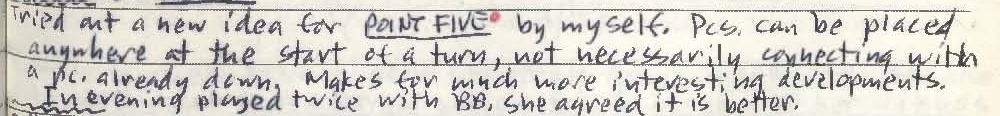 Tried out a new idea for POINT FIVE by myself. Pcs. can be placed
anywhere at the start of a turn, not necessarily connecting with
a pc. already down. Makes for much more interesting developments.
In evening played twice with BB, she agreed it is better.